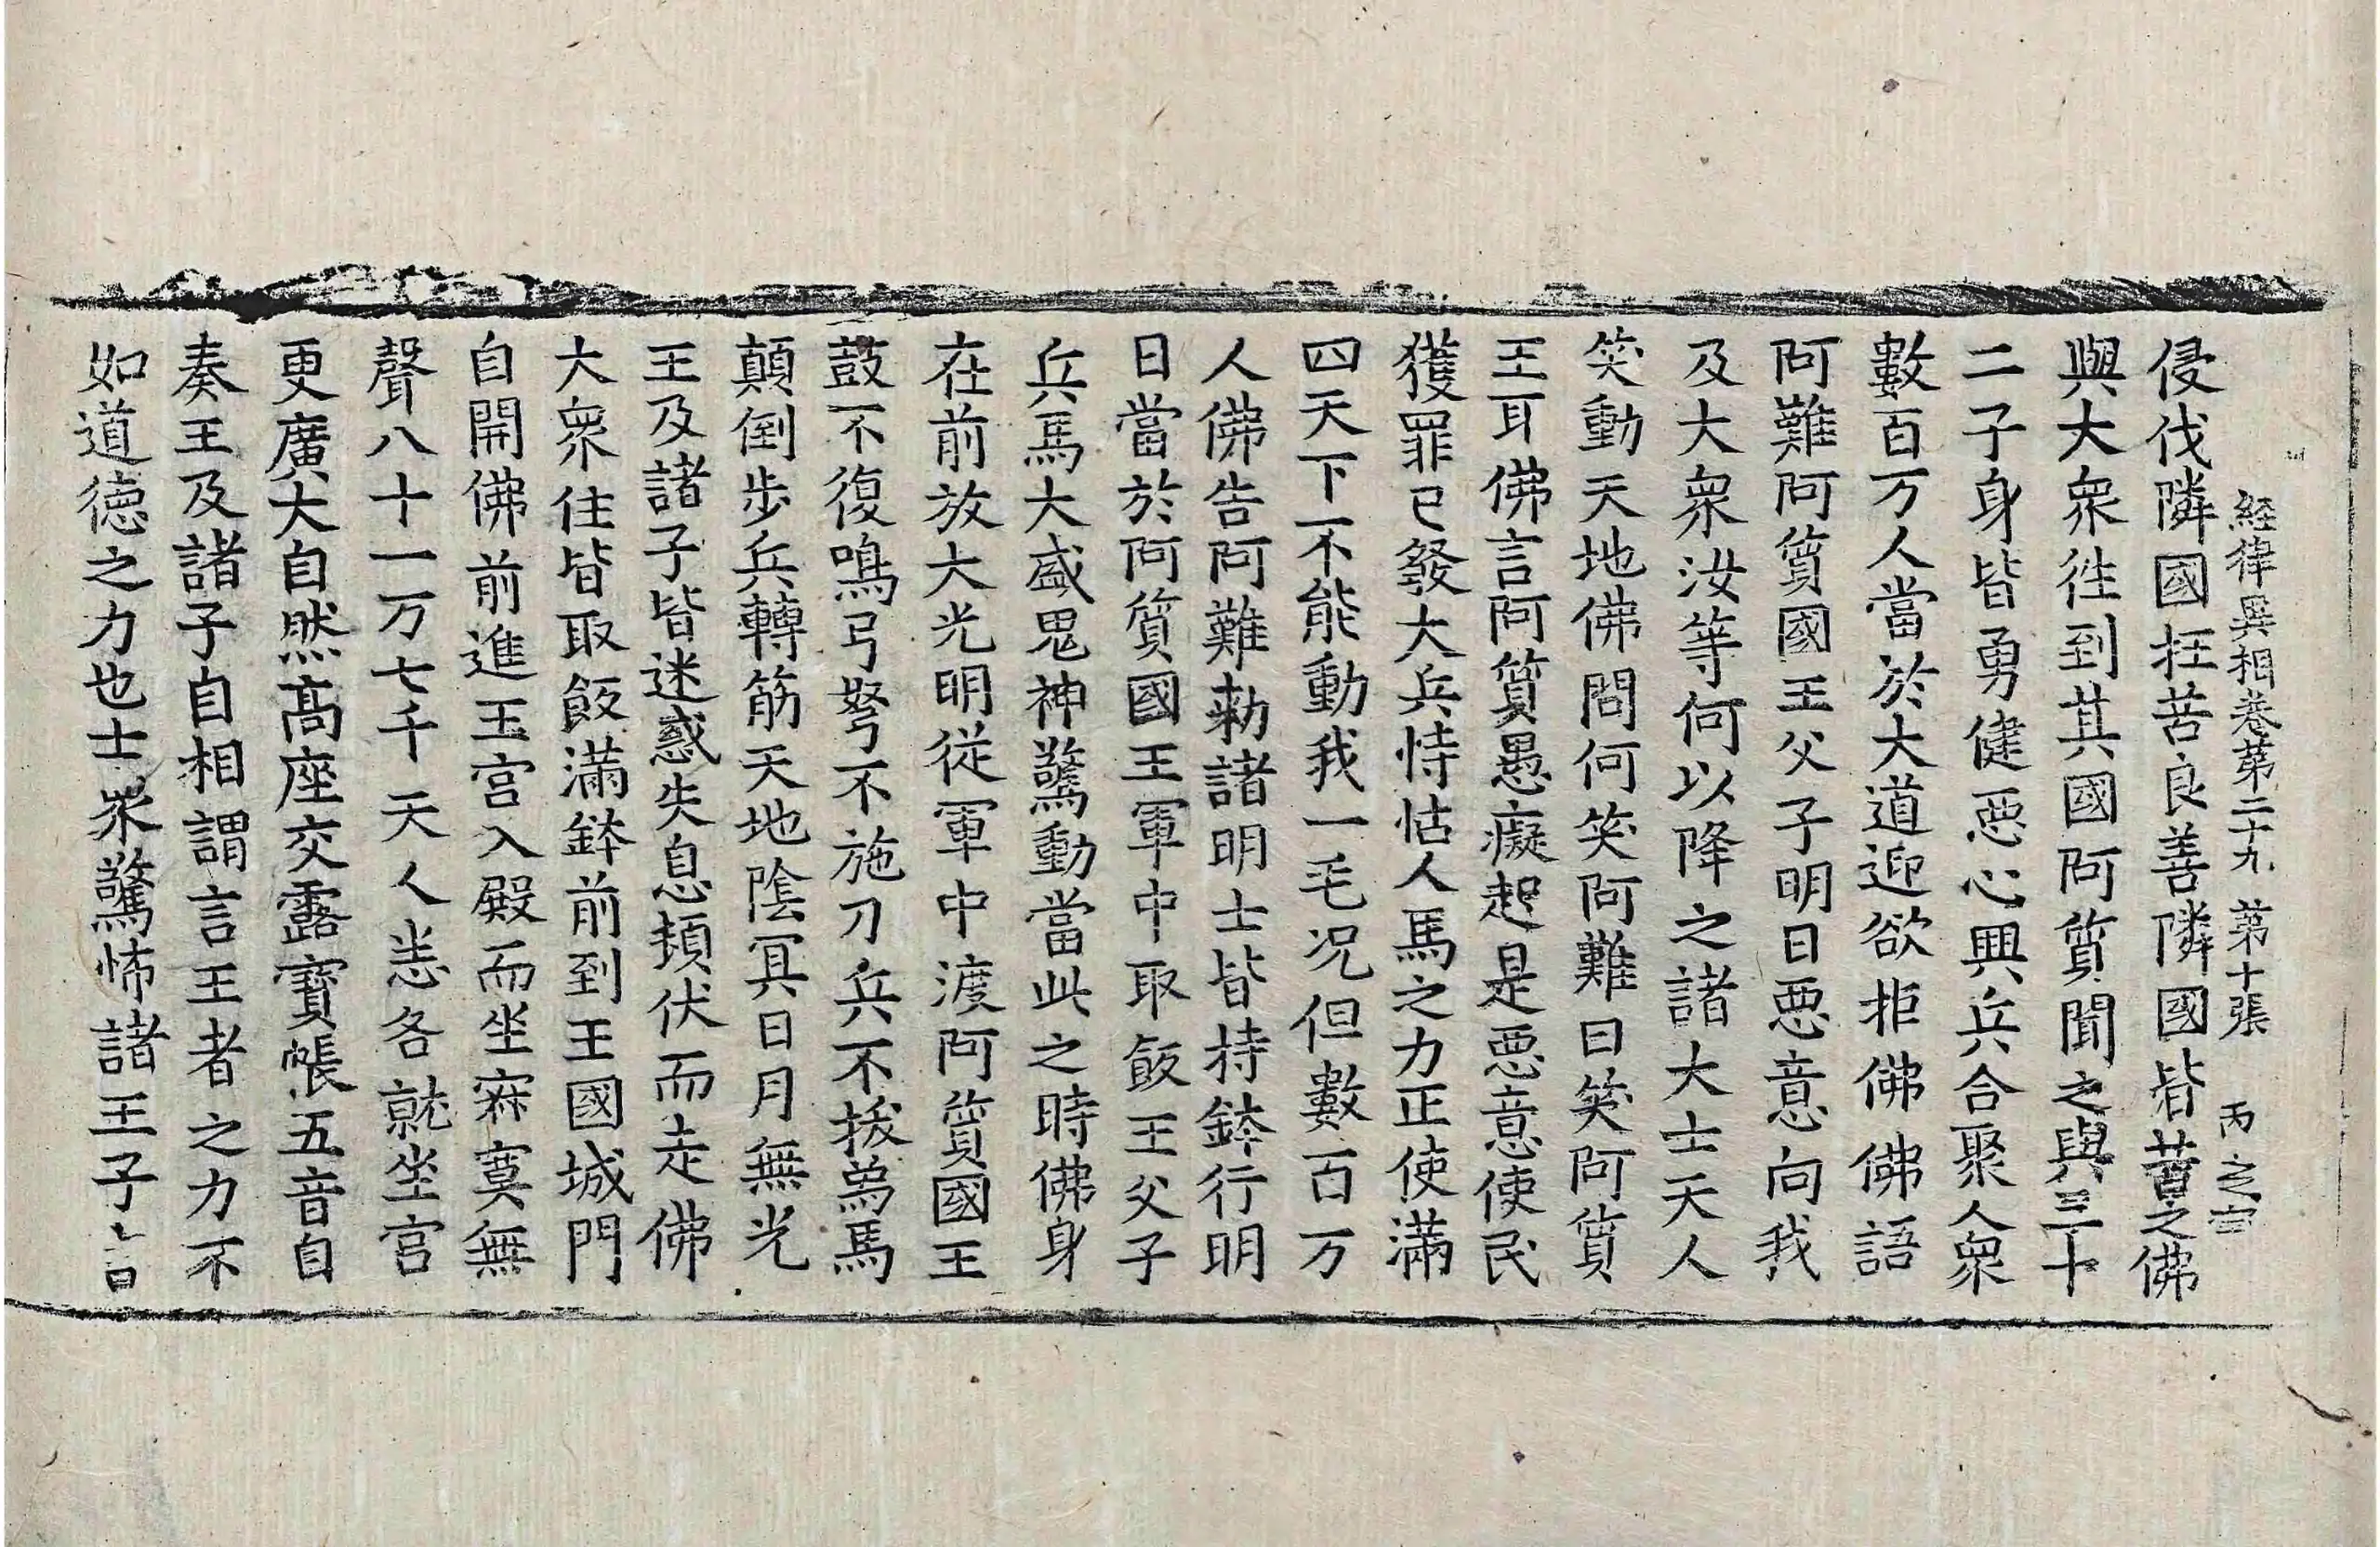 経律異相巻第二十九 第十張 丙之字
侵伐隣國抂苦良善隣國皆苦之佛
與大衆徃到其國阿質聞之與三十
二子身皆勇健惡心興兵合聚人衆
數百万人當於大道迎欲拒佛佛語
阿難阿質國王父子明日惡意向我
及大衆汝等何以降之諸大士天人
笑動天地佛問何笑阿難曰笑阿質
王耳佛言阿質愚癡起是惡意使民
獲罪已發大兵恃怙人馬之力正使滿
四天下不能動我一毛况但數百万
人佛告阿難勑諸明士皆持鉢行明
日當於阿質國王軍中取飯王父子
兵馬大盛鬼神驚動當此之時佛身
在前放大光明從軍中渡阿質國王
鼓不復鳴弓弩不施刀兵不拔爲馬
顛倒步兵轉筋天地陰冥日月無光
王及諸子皆迷惑失息頓伏而走佛
大衆住皆取飯滿鉢前到王國城門
自開佛前進王宮入殿而坐寂寞無
聲八十一万七千天人悉各就坐宮
更廣大自然高座交露寶帳五音自
奏王及諸子自相謂言王者之力不
如道德之力也士衆驚怖諸王子言